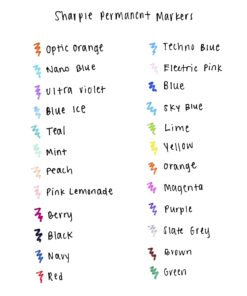 Sharpie Permanent Markers
Optic Orange
Nano Blue
Ultra Violet
Blue Ice
Teal
Mint
Peach
Pink Lemonade
Berry
Black
Navy
Red
Techno Blue
Electric Pink
Blue
Sky Blue
Lime
Yellow
Orange
Magenta
Purple
Slate Grey
Brown
Green